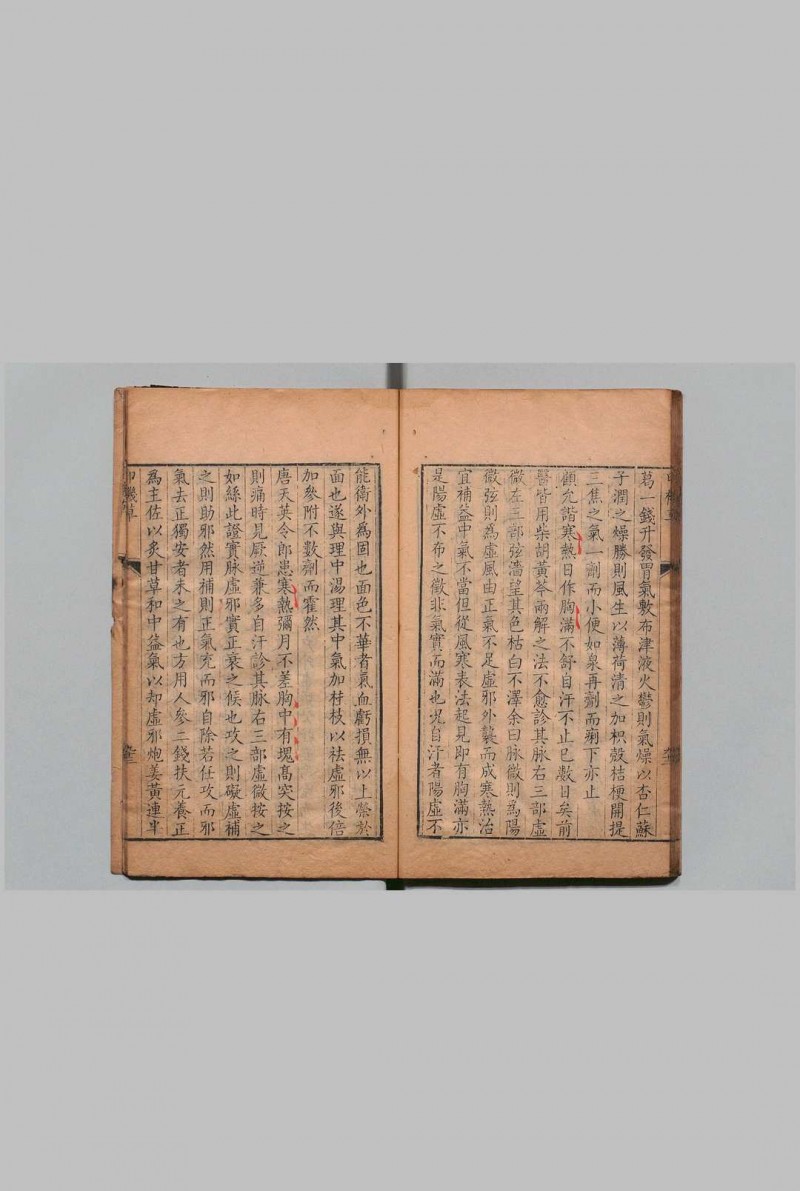 葛一錢升發胃氣敷布津液火鬱則氣燥以杏仁蘇
子潤之燥勝則風生以薄荷清之加枳殼桔梗開提
三焦之氣一劑而小便如泉再劑而痢下亦止
顧允諧寒熱日作胸滿不舒自汗不止已數日矣前
醫皆用柴胡黃芩兩解之法不愈診其脉右三部虛
微左三部弦濇望其色枯白不澤余曰脉微則為陽
微弦則為虛風由正氣不足虛邪外襲而成寒熱治
宜補益中氣不當但從風寒表法起見即有胸滿亦
是陽虛不布之徵非氣實而滿也况自汗者陽虛不
能衛外為固也面色不華者氣血虧損無以上榮於
面也遂與理中湯理其中氣加桂枝以祛虛邪後倍
加參附不數劑而霍然
唐天英令郎患寒熱彌月不差胸中有塊高突按之
則痛時見厥逆兼多自汗診其脉右三部虛微按之
如絲此證實脉虛邪實正衰之候也攻之則礙虛補
之則助邪然用補則正氣充而邪自除若任攻而邪
氣去正獨安者未之有也方用人參二錢扶元養正
為主佐以炙甘草和中益氣以却虛邪炮姜黃連半
印機草